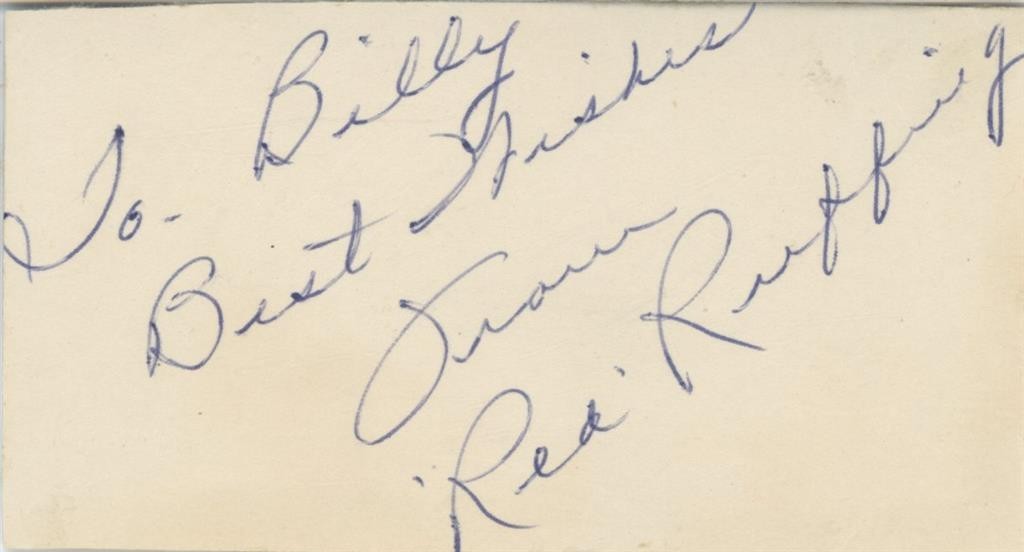 To- Billy
Best Wishes
From
"Red" Ruffing